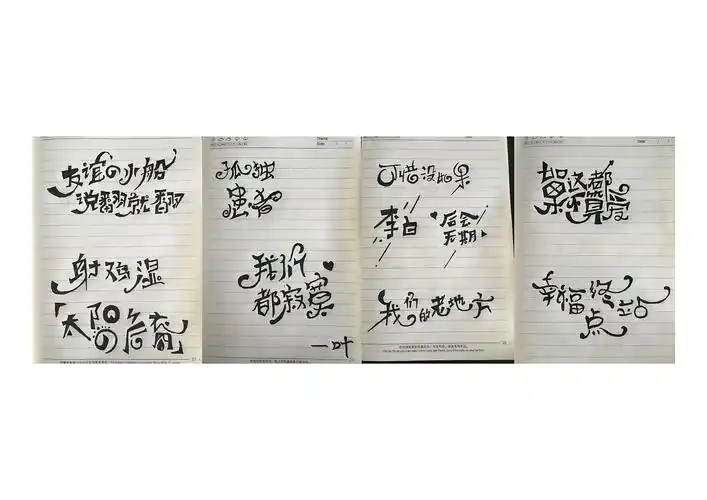 友谊の小船
说翻就翻
射鸡湿
「太阳の后裔」
孤独
患者
我们
都寂寞
一叶
可惜没如果
李白
后会
无期
我们的老地方
如果这都
不算爱
幸福终站
点